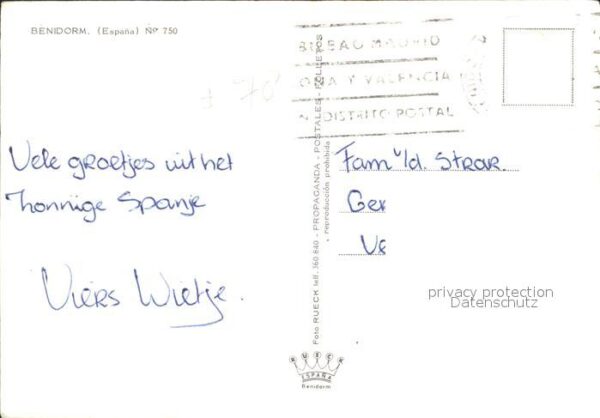 BENIDORM. (España) Nº 750
BILBAO MADRID
ONA Y VALENCIA
DISTRITO POSTAL
Vele groetjes uit het
zonnige Spanje
Wietje.
Fam v/d. Strar.
Ger
Foto RUECK telf. 360 840 - PROPAGANDA - POSTALES - FOLLETOS
reproducción prohibida
RUECK
ESPAÑA
Benidorm
privacy protection
Datenschutz